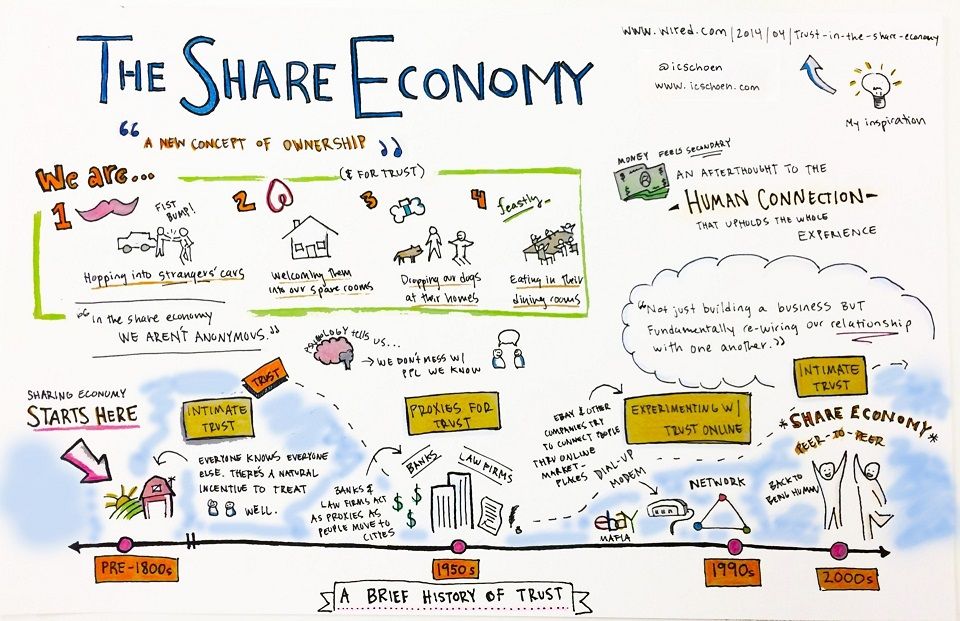 THE SHARE ECONOMY
“ A NEW CONCEPT OF OWNERSHIP ”
www.wired.com/2014/04/trust-in-the-share-economy
@icschoen
www.icschoen.com
My inspiration
We are...
($ FOR TRUST)
1
FIST
BUMP!
Hopping into strangers' cars
2
Welcoming them
into our spare rooms
3
Dropping our dogs
at their homes
4
feastly
Eating in their
dining rooms
“In the share economy
WE AREN'T ANONYMOUS.”
MONEY FEELS SECONDARY
AN AFTERTHOUGHT TO THE
HUMAN CONNECTION
THAT UPHOLDS THE WHOLE
EXPERIENCE
“Not just building a business BUT
Fundamentally re-wiring our relationship
with one another.”
PSYCHOLOGY tells us...
→ WE DON'T MESS W/
PPL WE KNOW
SHARING ECONOMY
STARTS HERE
TRUST
INTIMATE
TRUST
EVERYONE KNOWS EVERYONE
ELSE. THERE'S A NATURAL
INCENTIVE TO TREAT
WELL.
PROXIES FOR
TRUST
BANKS
LAW FIRMS
BANKS &
LAW FIRMS ACT
AS PROXIES AS
PEOPLE MOVE TO
CITIES
$ $ $
EBAY & OTHER
COMPANIES TRY
TO CONNECT PEOPLE
THRU ONLINE
MARKET-
PLACES
EXPERIMENTING W/
TRUST ONLINE
DIAL-UP
MODEM
ebay
MAFIA
NETWORK
INTIMATE
TRUST
*SHARE ECONOMY*
PEER-TO-PEER
BACK TO
BEING HUMAN
PRE-1800s
1950s
1990s
2000s
A BRIEF HISTORY OF TRUST